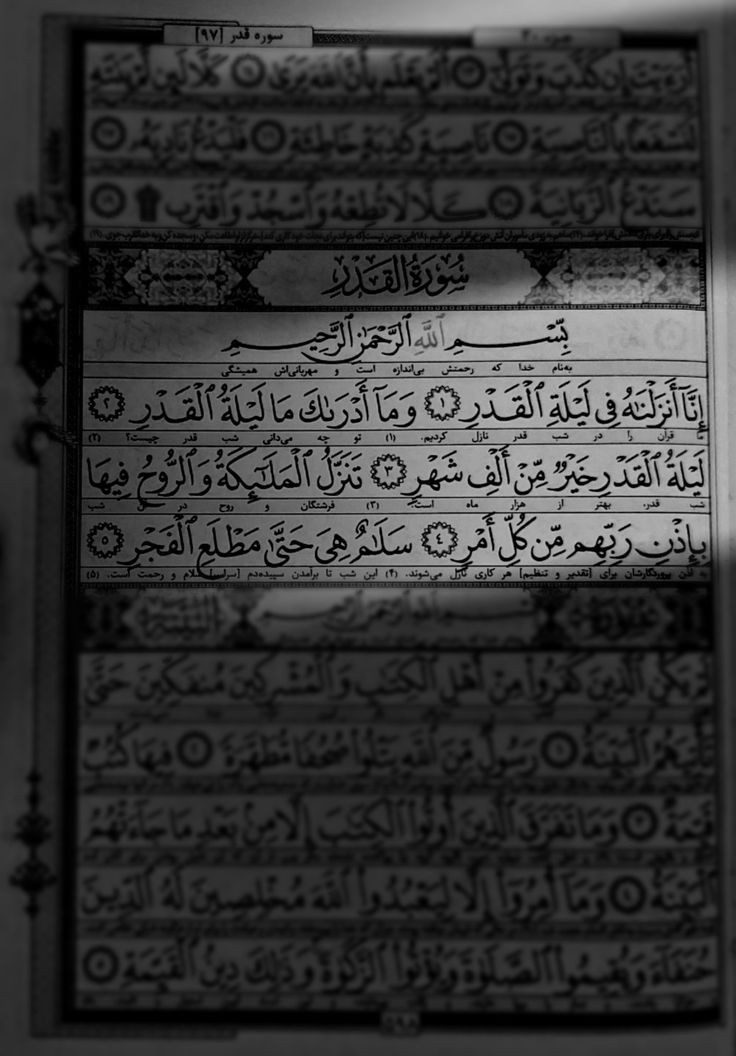 سوره قدر [۹۷]
جزء ۳۰
أَرَءَيْتَ إِن كَذَّبَ وَتَوَلَّىٰ ۝١٣ أَلَمْ يَعْلَم بِأَنَّ ٱللَّهَ يَرَىٰ ۝١٤ كَلَّا لَئِن لَّمْ يَنتَهِ
لَنَسْفَعًۢا بِٱلنَّاصِيَةِ ۝١٥ نَاصِيَةٍ كَٰذِبَةٍ خَاطِئَةٍ ۝١٦ فَلْيَدْعُ نَادِيَهُۥ ۝١٧
سَنَدْعُ ٱلزَّبَانِيَةَ ۝١٨ كَلَّا لَا تُطِعْهُ وَٱسْجُدْ وَٱقْتَرِب ۩ ۝١٩
سُورَةُ الْقَدْرِ
بِسْمِ ٱللَّهِ ٱلرَّحْمَٰنِ ٱلرَّحِيمِ
به‌نام خدا که رحمتش بی‌اندازه است و مهربانی‌اش همیشگی
إِنَّآ أَنزَلْنَٰهُ فِى لَيْلَةِ ٱلْقَدْرِ ۝١ وَمَآ أَدْرَىٰكَ مَا لَيْلَةُ ٱلْقَدْرِ ۝٢
ما قرآن را در شب قدر نازل کردیم. (۱) تو چه می‌دانی شب قدر چیست؟ (۲)
لَيْلَةُ ٱلْقَدْرِ خَيْرٌ مِّنْ أَلْفِ شَهْرٍ ۝٣ تَنَزَّلُ ٱلْمَلَٰٓئِكَةُ وَٱلرُّوحُ فِيهَا
شب قدر، بهتر از هزار ماه است. (۳) فرشتگان و روح در شب
بِإِذْنِ رَبِّهِم مِّن كُلِّ أَمْرٍ ۝٤ سَلَٰمٌ هِىَ حَتَّىٰ مَطْلَعِ ٱلْفَجْرِ ۝٥
به اذن پروردگارشان برای [تقدیر و تنظیم] هر کاری نازل می‌شوند. (۴) این شب تا برآمدن سپیده‌دم [سراسر] سلام و رحمت است. (۵)
سورة بِسْمِ ٱللَّهِ ٱلرَّحْمَٰنِ ٱلرَّحِيمِ البيّنة
لَمْ يَكُنِ ٱلَّذِينَ كَفَرُوا۟ مِنْ أَهْلِ ٱلْكِتَٰبِ وَٱلْمُشْرِكِينَ مُنفَكِّينَ حَتَّىٰ
تَأْتِيَهُمُ ٱلْبَيِّنَةُ ۝١ رَسُولٌ مِّنَ ٱللَّهِ يَتْلُوا۟ صُحُفًا مُّطَهَّرَةً ۝٢ فِيهَا كُتُبٌ
قَيِّمَةٌ ۝٣ وَمَا تَفَرَّقَ ٱلَّذِينَ أُوتُوا۟ ٱلْكِتَٰبَ إِلَّا مِنۢ بَعْدِ مَا جَآءَتْهُمُ
ٱلْبَيِّنَةُ ۝٤ وَمَآ أُمِرُوٓا۟ إِلَّا لِيَعْبُدُوا۟ ٱللَّهَ مُخْلِصِينَ لَهُ ٱلدِّينَ
حُنَفَآءَ وَيُقِيمُوا۟ ٱلصَّلَوٰةَ وَيُؤْتُوا۟ ٱلزَّكَوٰةَ وَذَٰلِكَ دِينُ ٱلْقَيِّمَةِ ۝٥
۵۹۸